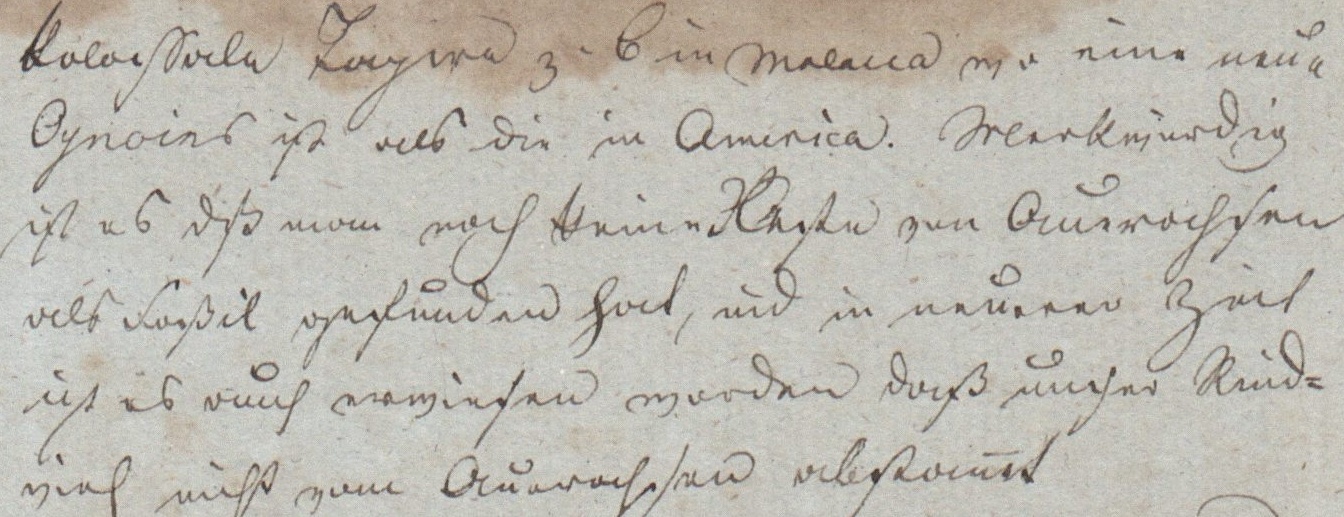 kolossale Tapire z. B in Malacca wo eine neue
Species ist als die in America. Merkwürdig
ist es dß man noch keine Reste von Auerochsen
als Foßil gefunden hat, und in neuerer Zeit
ist es auch erwiesen worden daß unser Rind=
vieh nicht vom Auerochsen abstam̅t